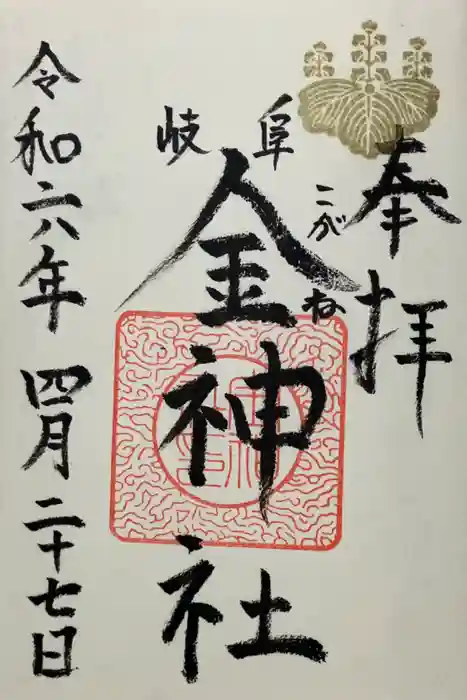 奉拝
岐阜
金神社
こがね
令和六年四月二十七日